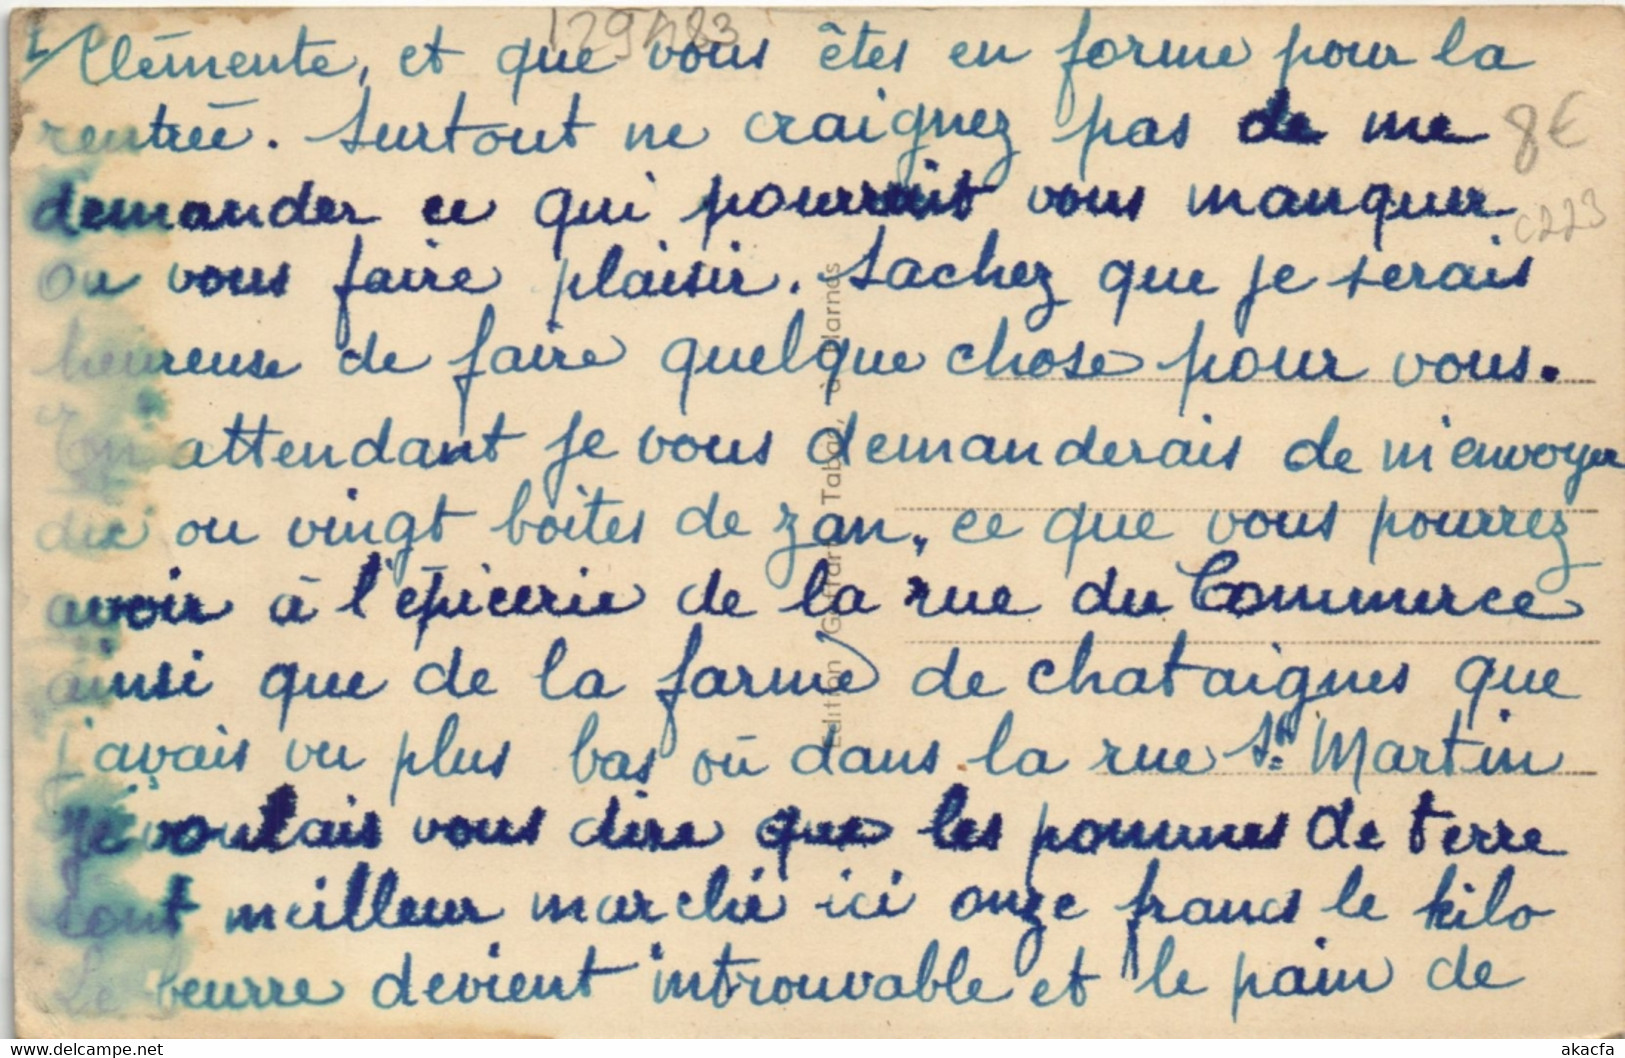 129483
Clémente, et que vous êtes en forme pour la
rentrée. Surtout ne craignez pas de me
8€
demander ce qui pourrait vous manquer
c223
ou vous faire plaisir. Sachez que je serais
heureuse de faire quelque chose pour vous.
En attendant je vous demanderais de m'envoyer
dix ou vingt boites de zan, ce que vous pourrez
avoir à l'épicerie de la rue du Commerce
ainsi que de la farine de chataignes que
j'avais vu plus bas où dans la rue St Martin
je voulais vous dire que les pommes de terre
sont meilleur marché ici onze francs le kilo
Le beurre devient introuvable et le pain de
Edition Tabac, à Salernes
akacfa
www.delcampe.net